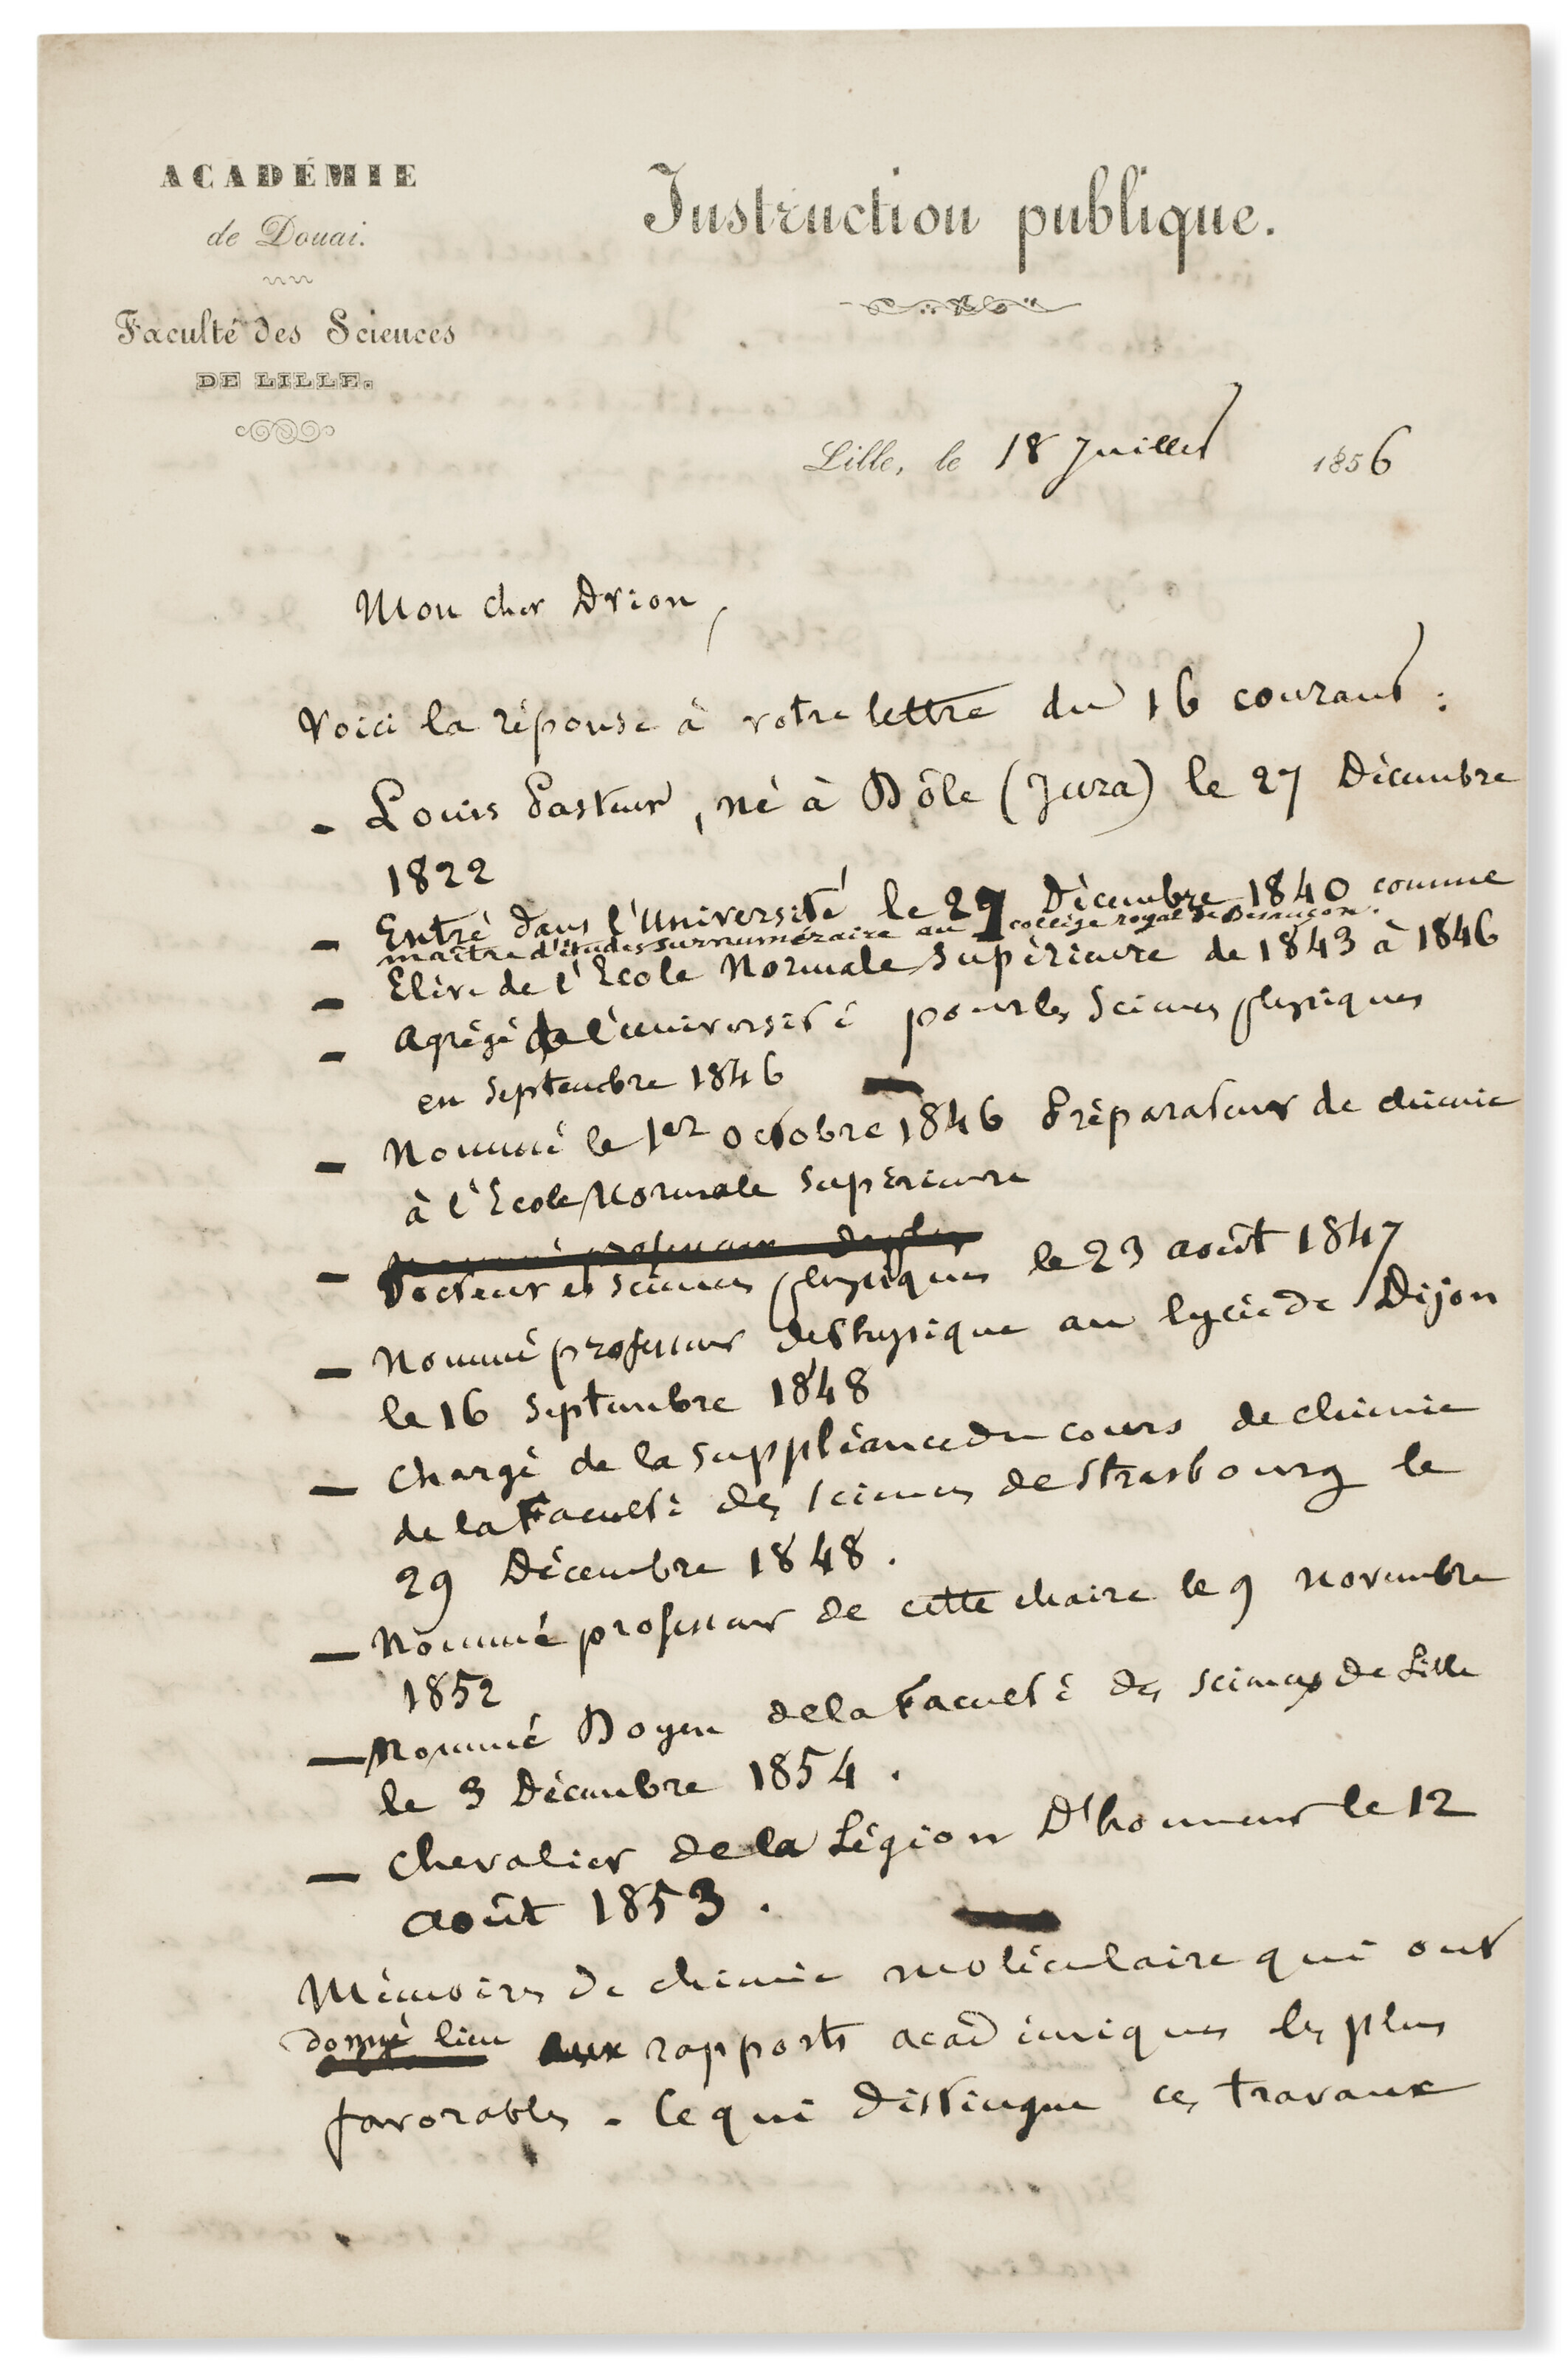 ACADÉMIE
de Douai.
Faculté des Sciences
DE LILLE.
Instruction publique.
Lille, le 18 Juillet 1856
Mon cher Drion,
Voici la réponse à votre lettre du 16 courant :
- Louis Pasteur, né à Dôle (Jura) le 27 Décembre
1822
- Entré dans l'Université le 29 Décembre 1840 comme
maître d'études surnuméraire au collège royal de Besançon.
- Elève de l'Ecole Normale Supérieure de 1843 à 1846
- agrégé de l'université pour les Sciences physiques
en Septembre 1846
- Nommé le 1er octobre 1846 Préparateur de chimie
à l'Ecole Normale Supérieure
- Docteur ès Sciences physiques le 23 août 1847
- Nommé professeur de Physique au lycée de Dijon
le 16 Septembre 1848
- Chargé de la suppléance du cours de chimie
de la Faculté des Sciences de Strasbourg le
29 Décembre 1848.
- Nommé professeur de cette chaire le 9 novembre
1852
- Nommé Doyen de la Faculté des Sciences de Lille
le 3 Décembre 1854.
- Chevalier de la Légion D'honneur le 12
août 1853.
Mémoires de chimie moléculaire qui ont
donné lieu aux rapports académiques les plus
favorables - Ce qui distingue ces travaux